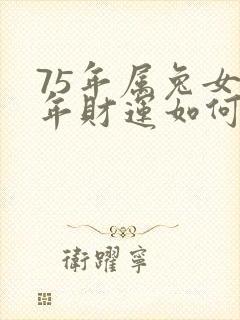 75年属兔女
年財運如何
衛躍寧